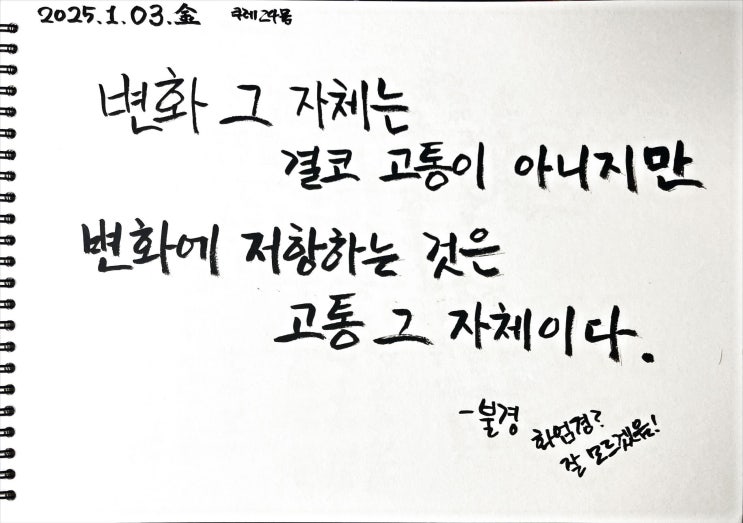 2025.1.03.金
변화 그 자체는
결코 고통이 아니지만
변화에 저항하는 것은
고통 그 자체이다.
-불경
화엄경?
잘 모르겠음!